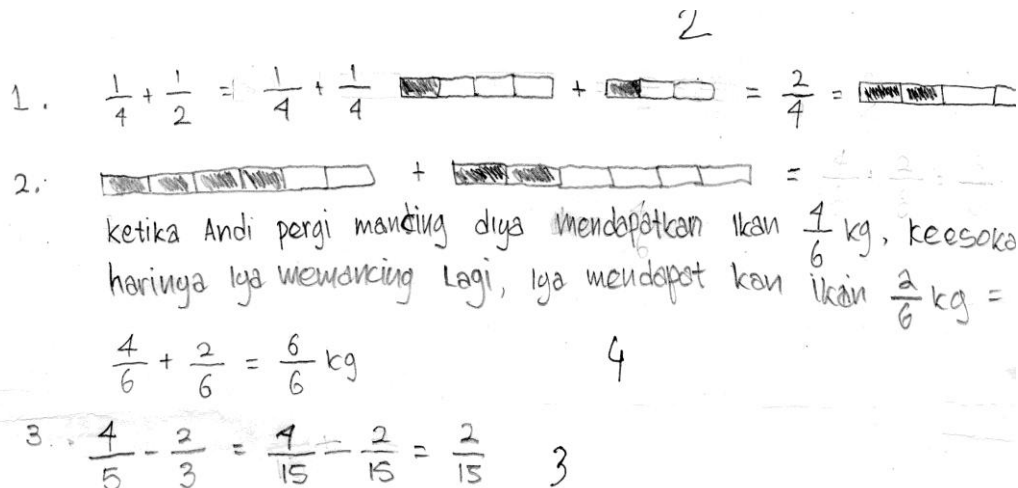 2
1. 1/4 + 1/2 = 1/4 + 1/4 + = 2/4 =
2. + =
ketika Andi pergi mancing diya mendapatkan ikan 4/6 kg, keesoka
harinya iya memancing Lagi, iya mendapat kan ikan 2/6 kg =
4/6 + 2/6 = 6/6 kg 4
3. 4/5 - 2/3 = 4/15 - 2/15 = 2/15 3